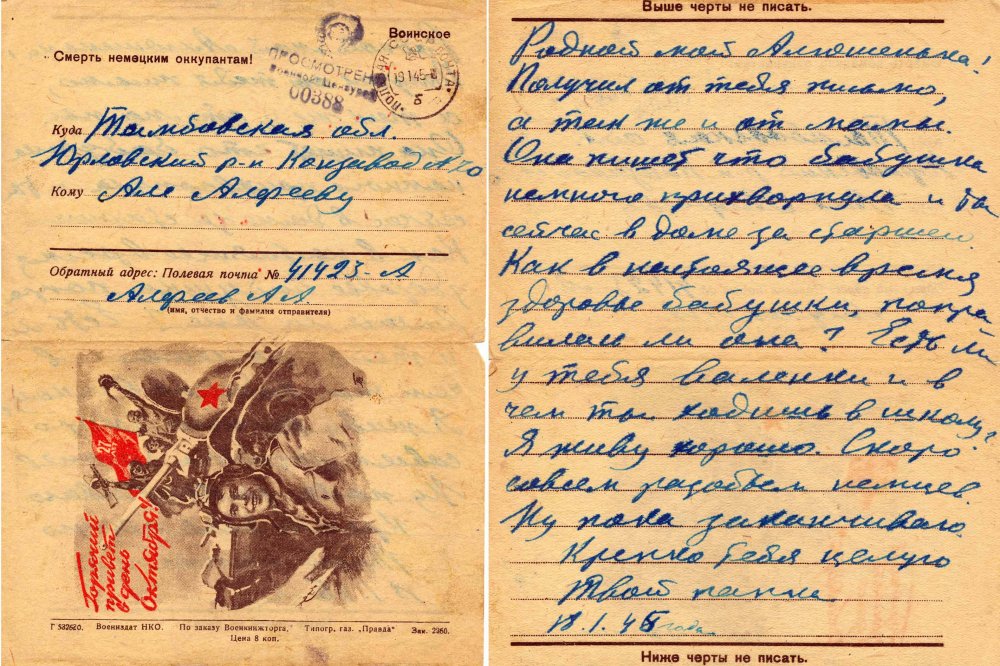 Воинское
Смерть немецким оккупантам!
ПРОСМОТРЕНО
Военной Цензурой
00388
Куда Тамбовская обл.
Юрловский р-н Конзавод № 70
Кому Але Алфееву
Обратный адрес: Полевая почта № 41423-А
Алфеев А А
(имя, отчество и фамилия отправителя)
27
Горячий
привет
в день
Октября!
Г 582620. Воениздат НКО. По заказу Военкнижторга. Типогр. газ. „Правда“ Зак. 2260.
Цена 8 коп.
Выше черты не писать.
Родной мой Алюшенька!
Получил от тебя письмо,
а так же и от мамы.
Она пишет что бабушка
немного прихворнула и ты
сейчас в доме за старшего.
Как в настоящее время
здоровье бабушки, попра
вилась ли она? Есть ли
у тебя валенки и в
чем ты ходишь в школу?
Я живу хорошо. Скоро
совсем разобьем немцев.
Ну пока заканчиваю.
Крепко тебя целую
Твой папка
18.1.45 года
Ниже черты не писать.